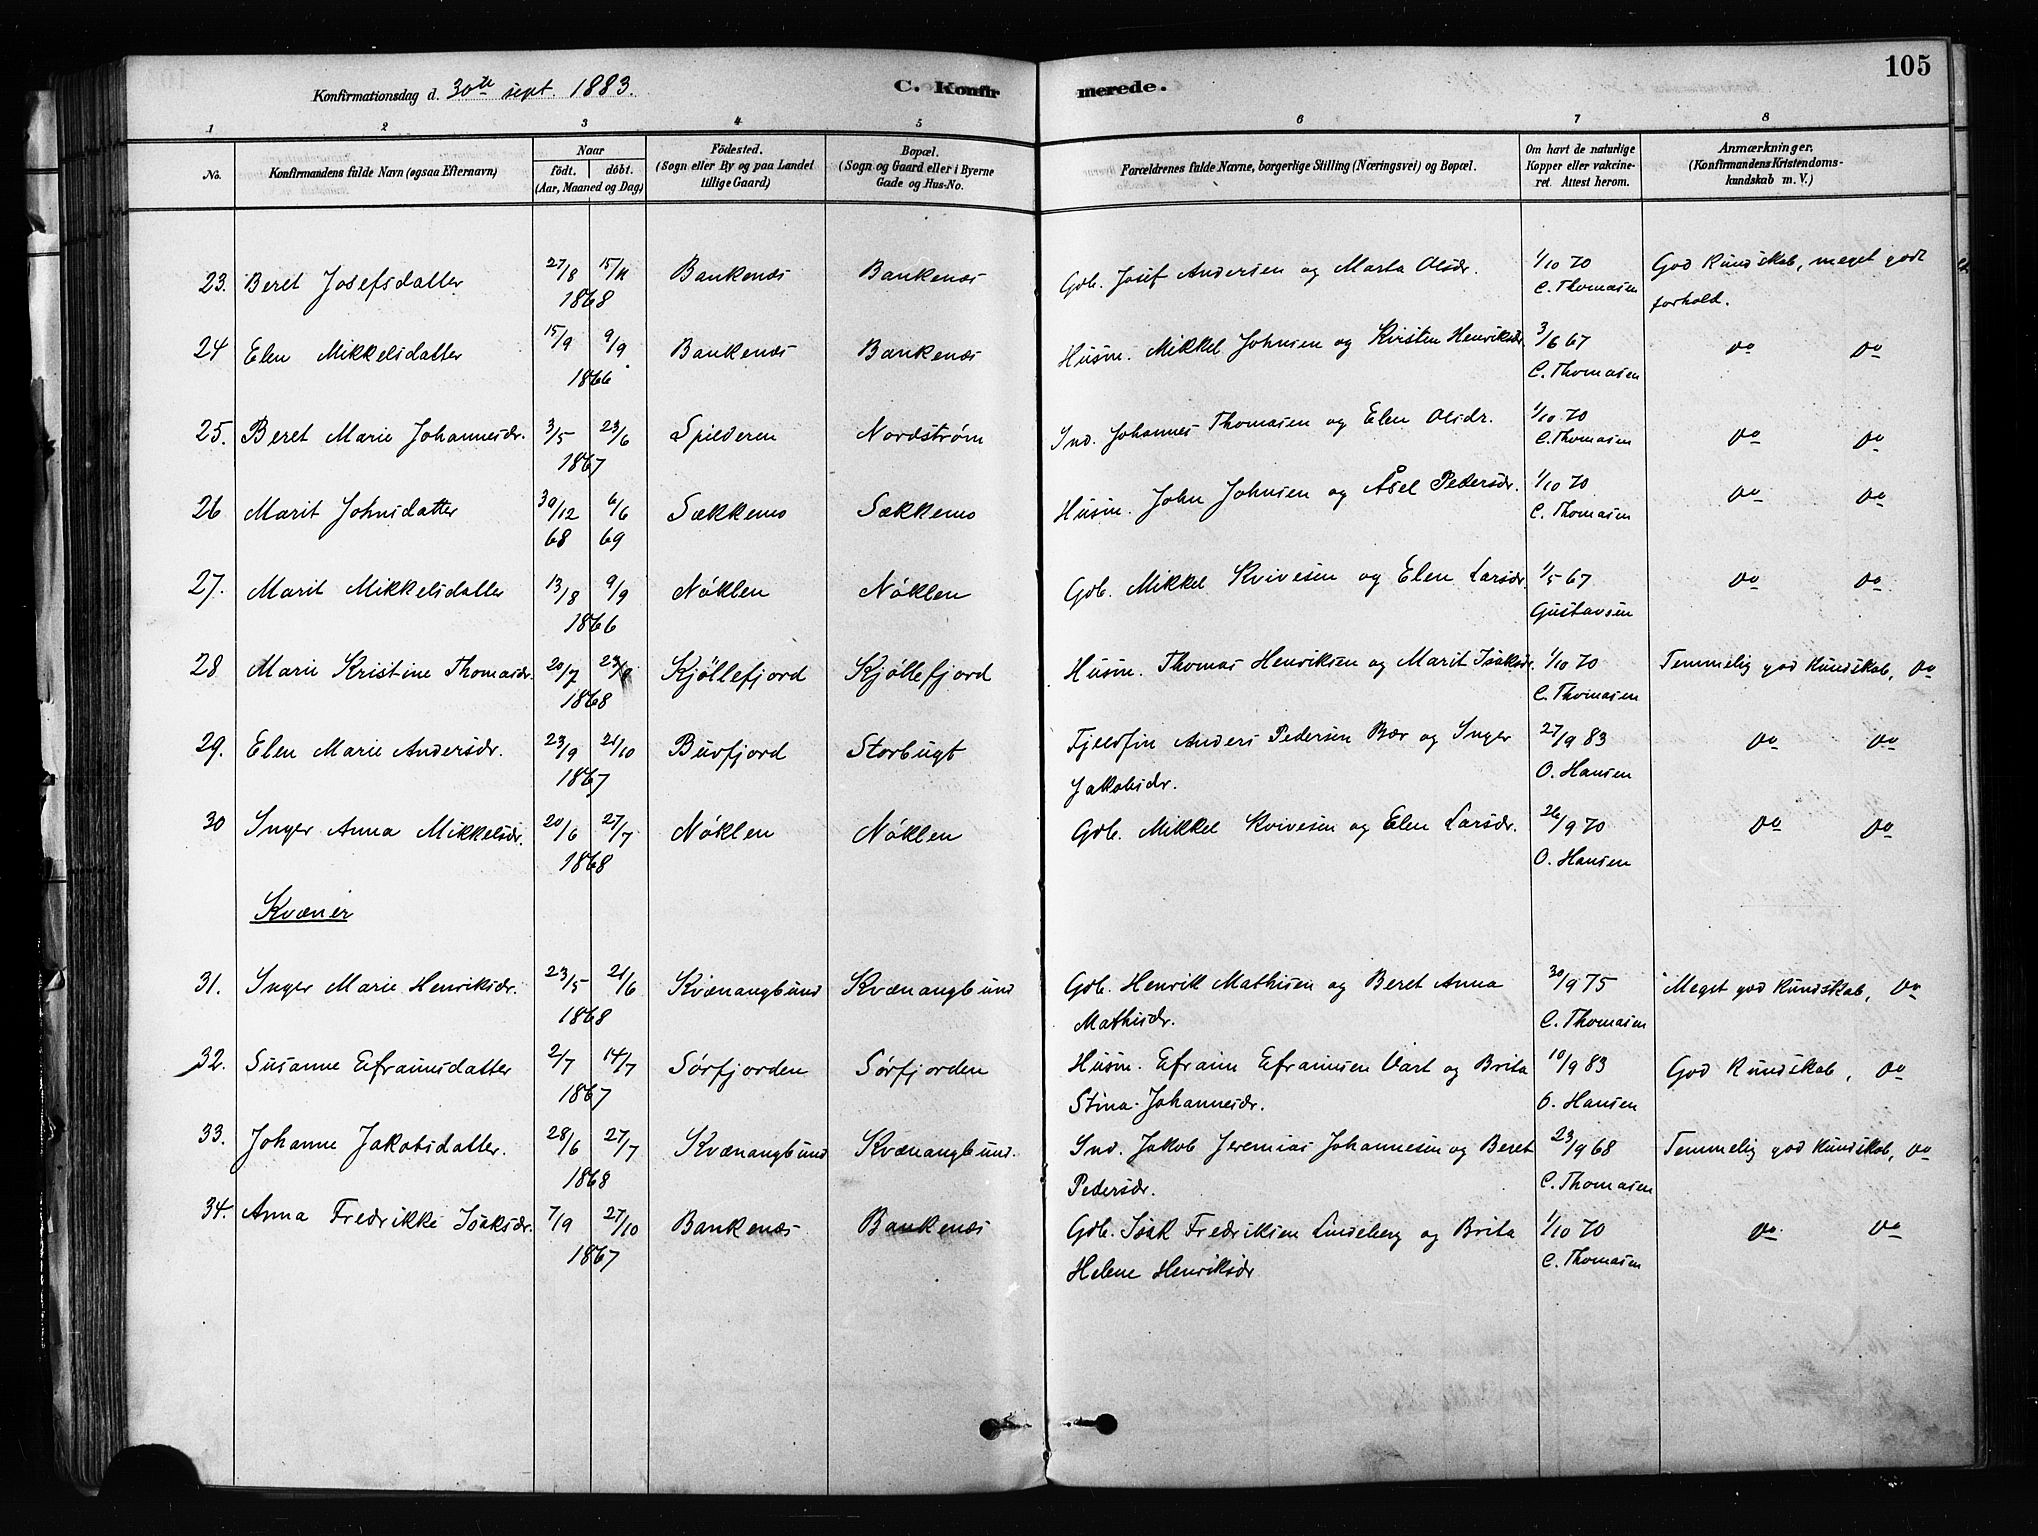 105
Konfirmationsdag d. 30te sept. 1883.
C. Konfirmerede.
1 2 3 4 5 6 7 8
No. Konfirmandens fulde Navn (ogsaa Efternavn) Naar født. døbt. (Aar, Maaned og Dag) Fødested. (Sogn eller By og paa Landet tillige Gaard) Bopæl. (Sogn og Gaard eller i Byerne Gade og Hus-No. Forældrenes fulde Navne, borgerlige Stilling (Næringsvei) og Bopæl. Om havt de naturlige Kopper eller vakcineret. Attest herom. Anmærkninger. (Konfirmandens Kristendomskundskab m. V.)
23. Beret Josefsdatter 27/8 15/11 Bankenæs Bankenæs Gdb. Josef Andersen og Marta Olsdr. 1/10 70 God Kundskab, meget godt
1868 C. Thomasen forhold.
24 Elen Mikkelsdatter 15/9 9/9 Bankenæs Bankenæs Husm. Mikkel Johnsen og Kirsten Henriksdr. 3/6 67 Do Do
1866 C. Thomasen
25. Beret Marie Johannesdr. 3/5 23/6 Spilderen Nordstrøm Ind. Johannes Thomasen og Elen Olsdr. 1/10 70 Do Do
1867 C. Thomasen
26 Marit Johnsdatter 30/12 6/6 Sækkemo Sækkemo Husm. John Johnsen og Åsel Pedersdr. 1/10 70 Do Do
68 69 C. Thomasen
27. Marit Mikkelsdatter 13/8 9/9 Nöklen Nöklen Gdb. Mikkel Kvivesen og Elen Larsdr. 1/5 67 Do Do
1866 Gustavsen
28 Marie Kristine Thomasdr. 20/7 23/8 Kjöllefjord Kjöllefjord Husm. Thomas Henriksen og Marit Isaksdr. 1/10 70 Temmelig god Kundskab, Do
1868 C. Thomasen
29. Elen Marie Andersdr. 23/9 21/10 Burfjord Storbugt Fjeldfin Anders Pedersen Bær og Inger 27/9 83 Do Do
1867 Jakobsdr. O. Hansen
30 Inger Anna Mikkelsdr. 20/6 27/7 Nöklen Nöklen Gdb. Mikkel Kvivesen og Elen Larsdr. 26/9 70 Do Do
1868 O. Hansen
Kvæner
31. Inger Marie Henriksdr. 23/5 21/6 Kvænangbund Kvænangbund Gdb. Henrik Mathisen og Beret Anna 30/9 75 Meget god Kundskab, Do
1868 Mathisdr. C. Thomasen
32. Susanne Efraimsdatter 2/7 14/7 Sørfjorden Sørfjorden Husm. Efraim Efraimsen Vart og Brita 10/9 83 God Kundskab, Do
1867 Stina Johannesdr. O. Hansen
33. Johanne Jakobsdatter. 28/6 27/7 Kvænangbund Kvænangbund. Ind. Jakob Jeremias Johannesen og Beret 23/9 68 Temmelig god Kundskab, Do
1868 Pedersdr. C. Thomasen
34. Anna Fredrikke Isaksdr. 7/9 27/10 Bankenæs Bankenæs Gdb. Isak Fredriksen Lindeberg og Brita 1/10 70 Do Do
1867 Helene Henriksdr C. Thomasen